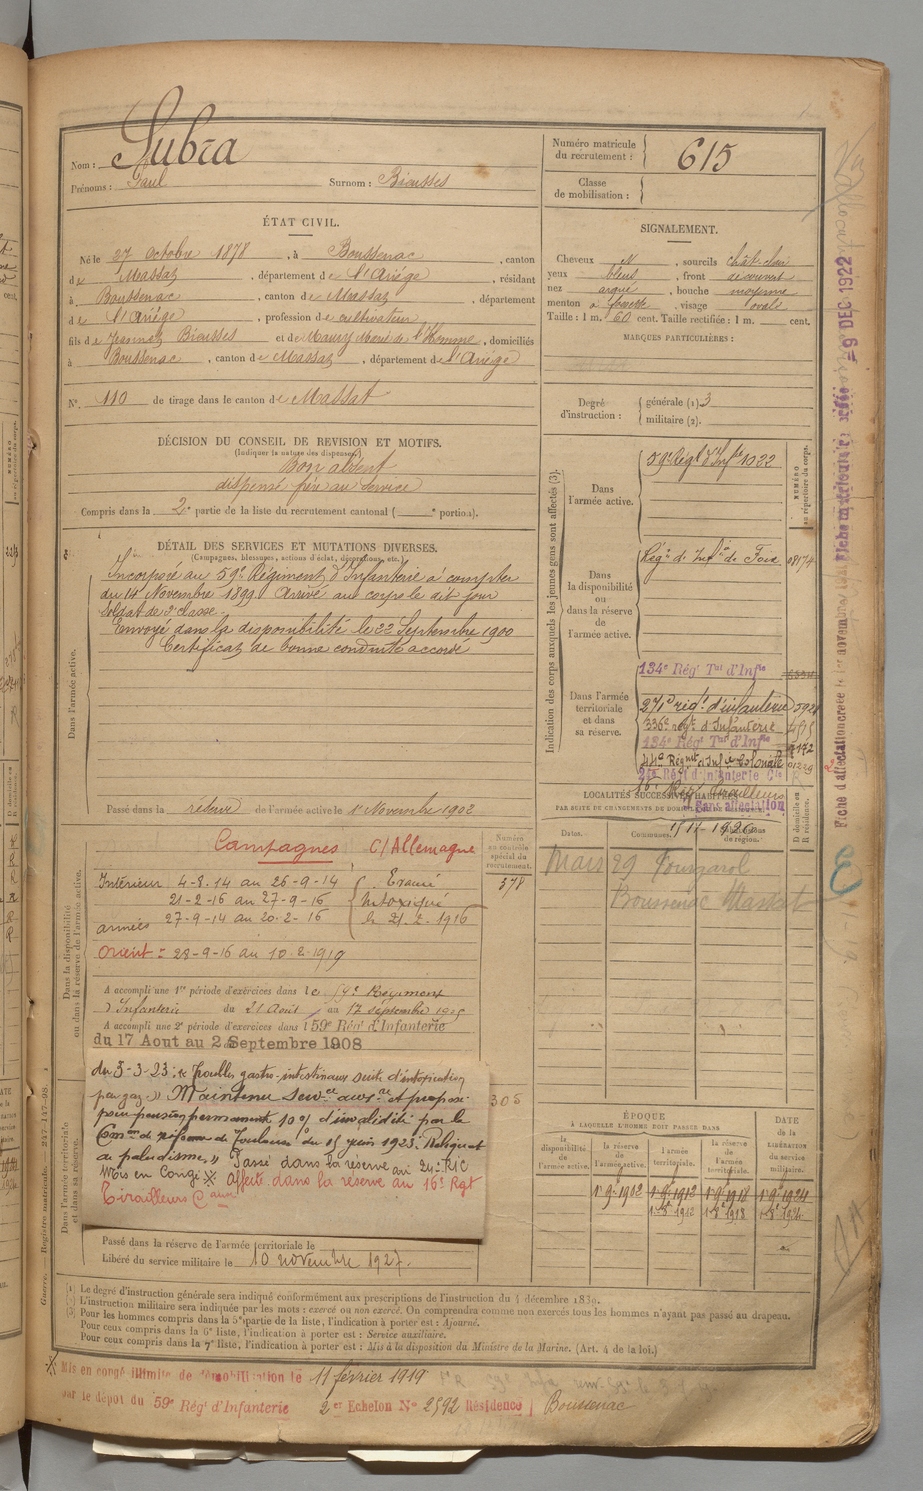 Nom : Subra
Prénoms : Paul Surnom : Biousses
Numéro matricule du recrutement : 615
Classe de mobilisation :
ÉTAT CIVIL.
Né le 27 octobre 1878, à Boussenac, canton
de Massat, département de l'Ariége, résidant
à Boussenac, canton de Massat, département
de l'Ariége, profession de cultivateur
fils de Jeannet Biousses et de Maury Marie de l'Homme, domiciliés
à Boussenac, canton de Massat, département de l'Ariége
N° 110 de tirage dans le canton de Massat
SIGNALEMENT.
Cheveux N, sourcils chât-clair
yeux bleus, front découvert
nez arqué, bouche moyenne
menton à fossette, visage ovale
Taille : 1 m. 60 cent. Taille rectifiée : 1 m. cent.
MARQUES PARTICULIÈRES :
Degré d'instruction : générale (1) 3
militaire (2).
DÉCISION DU CONSEIL DE REVISION ET MOTIFS.
(Indiquer la nature des dispenses)
Bon absent
dispensé frère au service
Compris dans la 2e partie de la liste du recrutement cantonal ( e portion).
DÉTAIL DES SERVICES ET MUTATIONS DIVERSES.
(Campagnes, blessures, actions d'éclat, décorations, etc.)
Incorporé au 59e Régiment d'Infanterie à compter
du 14 Novembre 1899. Arrivé au corps le dit jour
Soldat de 2e classe.
Envoyé dans la disponibilité le 22 Septembre 1900
Certificat de bonne conduite accordé
Dans l'armée active.
Passé dans la réserve de l'armée active le 1er Novembre 1902
Indication des corps auxquels les jeunes gens sont affectés (3).
NUMÉRO au répertoire du corps.
Dans l'armée active.
59e Régt d'Infie 1022
Dans la disponibilité ou dans la réserve de l'armée active.
Régt de Infie de Foix 08174
Dans l'armée territoriale et dans sa réserve.
134e Régt Tal d'Infie
271e régt d'infanterie
336e régt d'Infanterie
134e Régt Tal d'Infie
44e Régiment d'Infie Coloniale
24e Régt d'Infanterie Cle
16e Régt Tirailleurs
Sans affectation
LOCALITÉS SUCCESSIVES HABITÉES
PAR SUITE DE CHANGEMENTS DE DOMICILE
Dates. Communes. Subdivisions de région. D domicile ou R résidence.
Mars 29 Fougarol
Boussenac Massat
Dans la disponibilité ou dans la réserve de l'armée active.
Campagnes C/Allemagne
Numéro au contrôle spécial du recrutement.
378
Intérieur 4-8-14 au 26-9-14
21-2-16 au 27-9-16
armées 27-9-14 au 20-2-16
Evacué
Intoxiqué
le 21-2-1916
Orient = 28-9-16 au 10-2-1919
A accompli une 1re période d'exercices dans le 59e Régiment
d'Infanterie du 21 Août au 17 septembre 1905
A accompli une 2e période d'exercices dans l 59e Rég' d'Infanterie
du 17 Aout au 2 Septembre 1908
du 3-3-23 : « Troubles gastro-intestinaux suite d'intoxication
par gaz » Maintenu serv. et proposé
pour pension permanente 10% d'invalidité par la
Comon de réforme de Toulouse du 15 juin 1923 : Reliquat
de paludisme » Passé dans la réserve au 24e RIC
Mis en Congé ※ Affecté dans la réserve au 16e Rgt
Tirailleurs Caux
305
Dans l'armée territoriale et dans sa réserve.
Passé dans la réserve de l'armée territoriale le
Libéré du service militaire le 10 novembre 1927.
ÉPOQUE
À LAQUELLE L'HOMME DOIT PASSER DANS
la disponibilité de l'armée active. la réserve de l'armée active. l'armée territoriale. la réserve de l'armée territoriale. DATE de la LIBÉRATION du service militaire.
1er 9e 1902 1er 9e 1912 1er 9e 1918 1er 9e 1924
1-8e 1912 1-8e 1918 1-8e 1924
(1) Le degré d'instruction générale sera indiqué conformément aux prescriptions de l'instruction du 4 décembre 1889.
(2) L'instruction militaire sera indiquée par les mots : exercé ou non exercé. On comprendra comme non exercés tous les hommes n'ayant pas passé au drapeau.
(3) Pour les hommes compris dans la 5e partie de la liste, l'indication à porter est : Ajourné.
Pour ceux compris dans la 6e liste, l'indication à porter est : Service auxiliaire.
Pour ceux compris dans la 7e liste, l'indication à porter est : Mis à la disposition du Ministre de la Marine. (Art. 4 de la loi.)
※ Mis en congé illimité de démobilisation le 11 février 1919
par le dépôt du 59e Rég' d'Infanterie 2er Echelon N° 2592 Résidence Boussenac
-9 DEC 1922
Guerre. — Registre matricule.